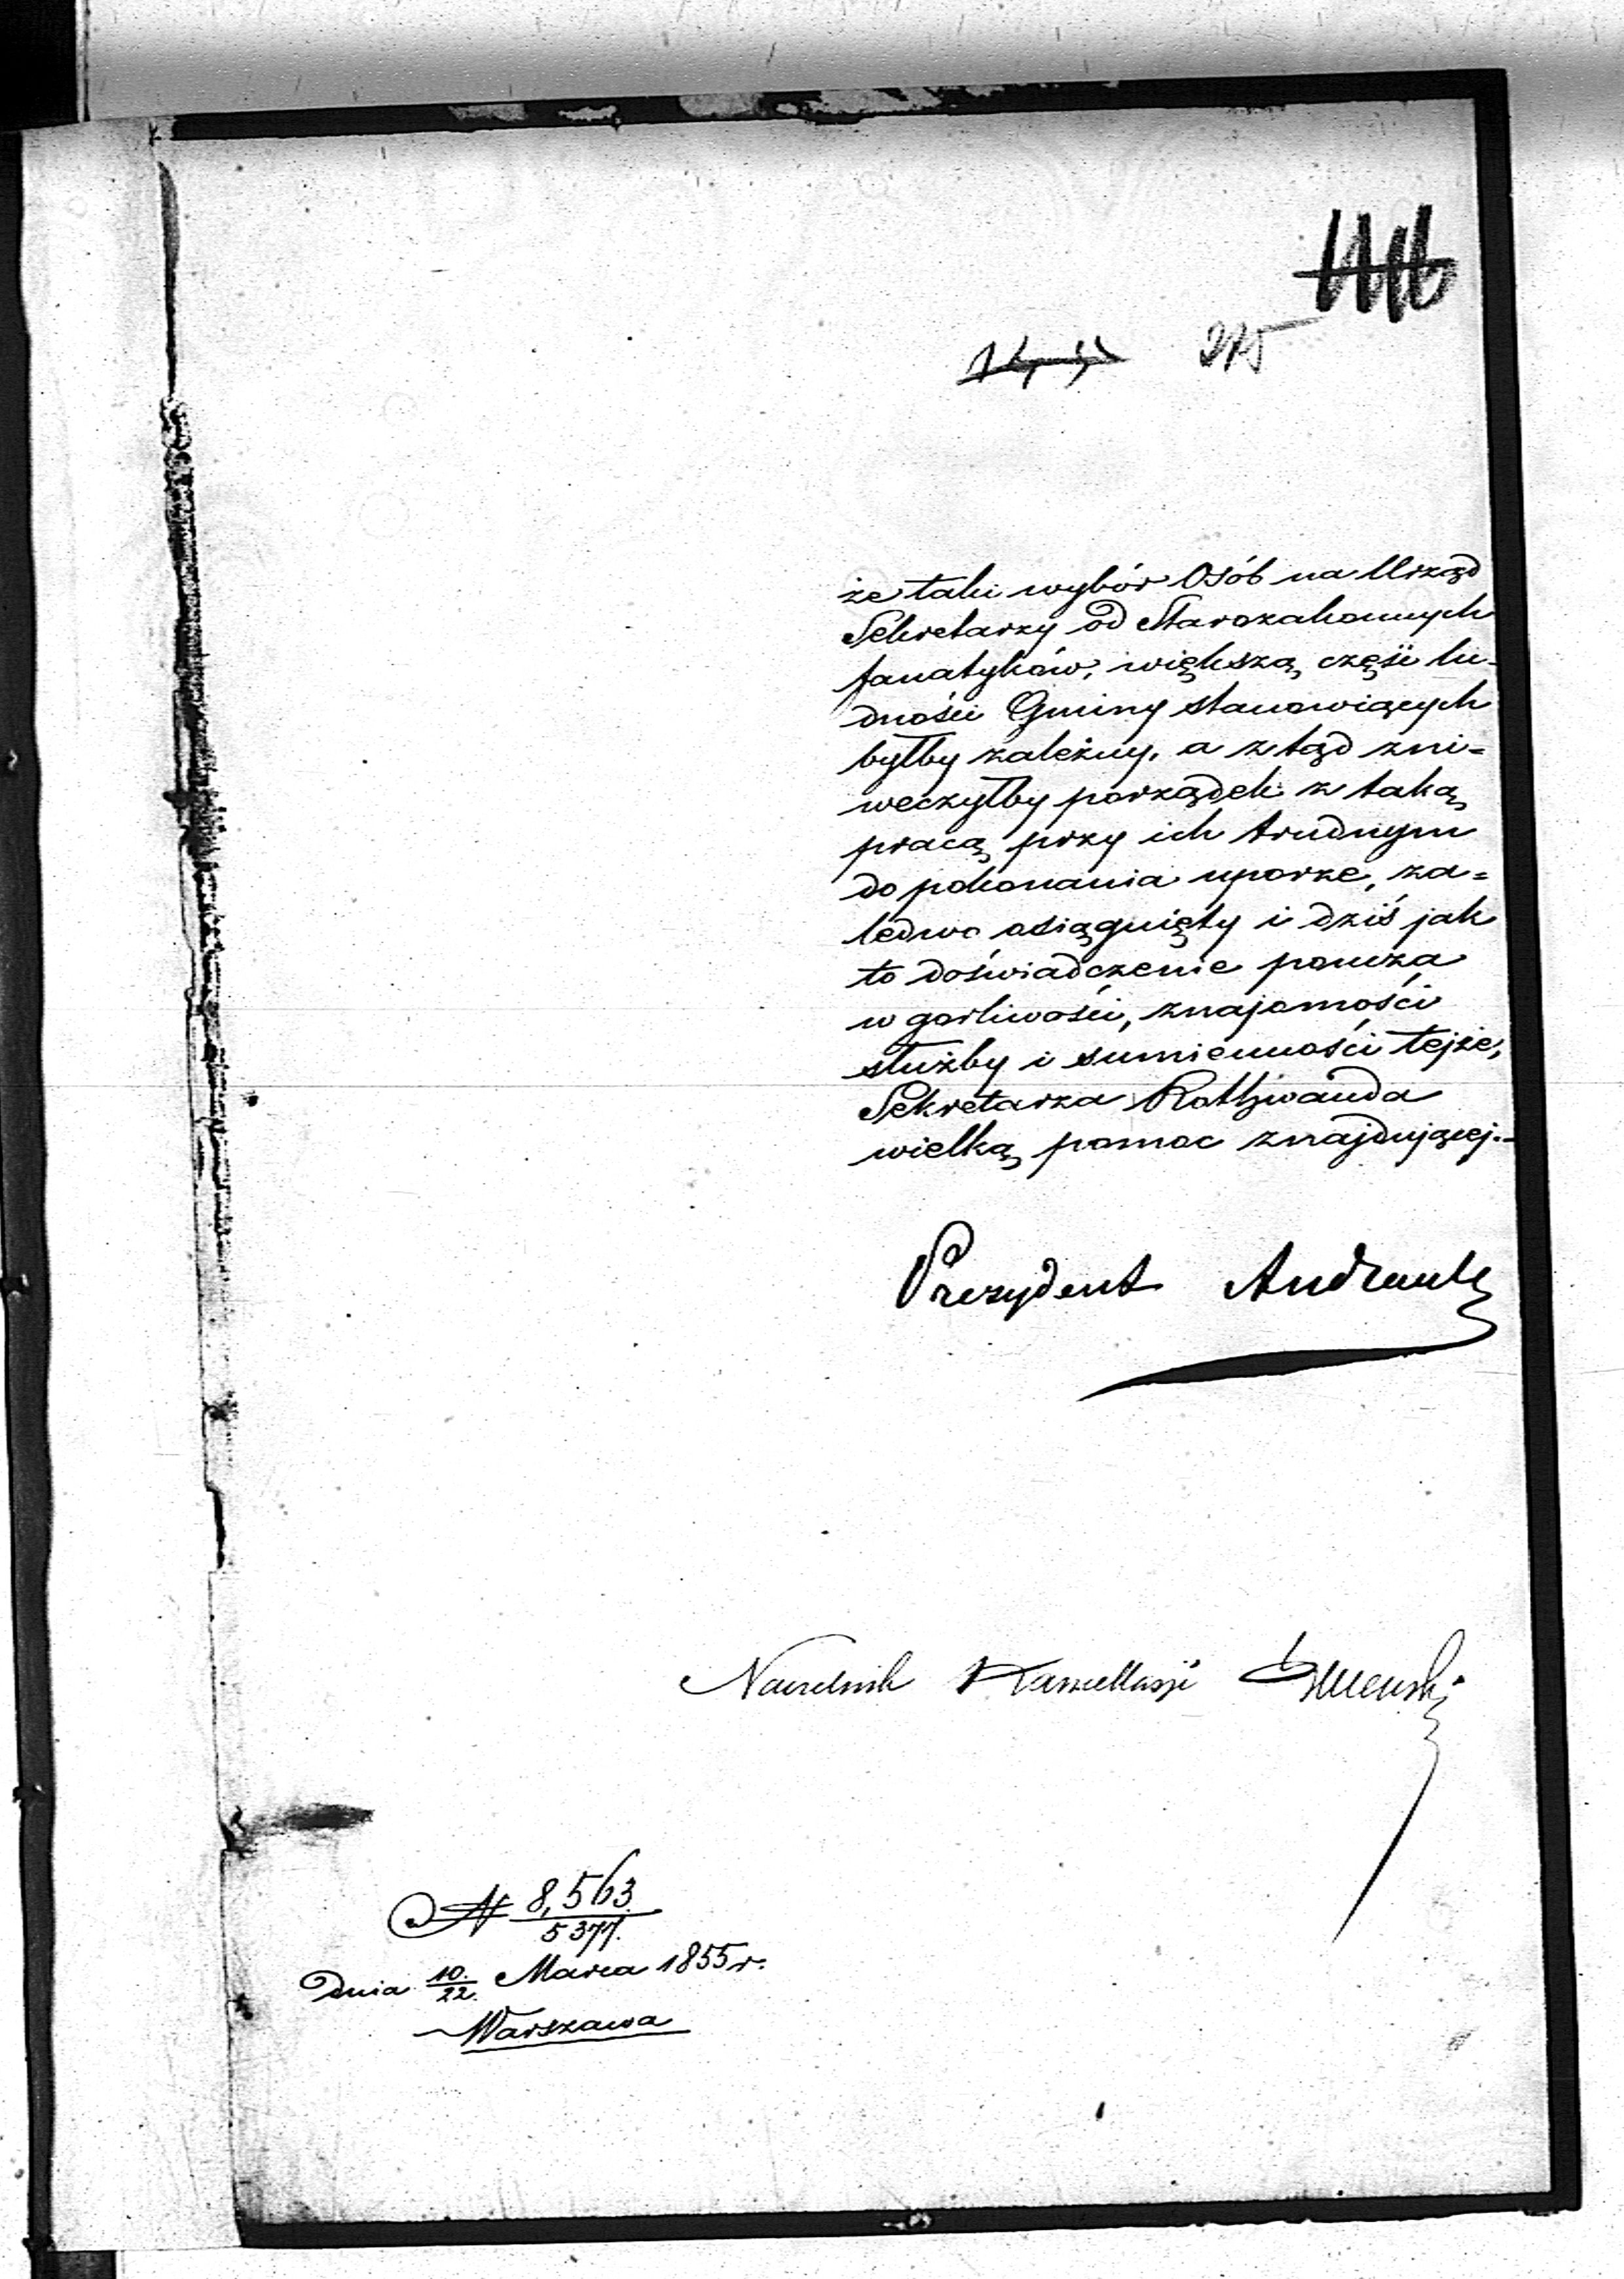 275
że taki wybór Osób na Urząd
Sekretarzy od Starozakonnych
fanatyków, większą części lu-
dności Gminy stanowiących
byłby zależny, a ztąd zni=
weczyłby porządek z taką
pracą przy ich trudnym
do pokonania uporze, za=
ledwo osiągnięty i dziś jak
to doświadczenie poucza
w gorliwości, znajomości
służby i sumienności tejże,
Sekretarza Rothwanda
wielką pomoc znajdującej.-
Prezydent Andrault
Naczelnik Kancellaryi
N 8,563.
5377.
Dnia 10./22. Marca 1855 r.
Warszawa